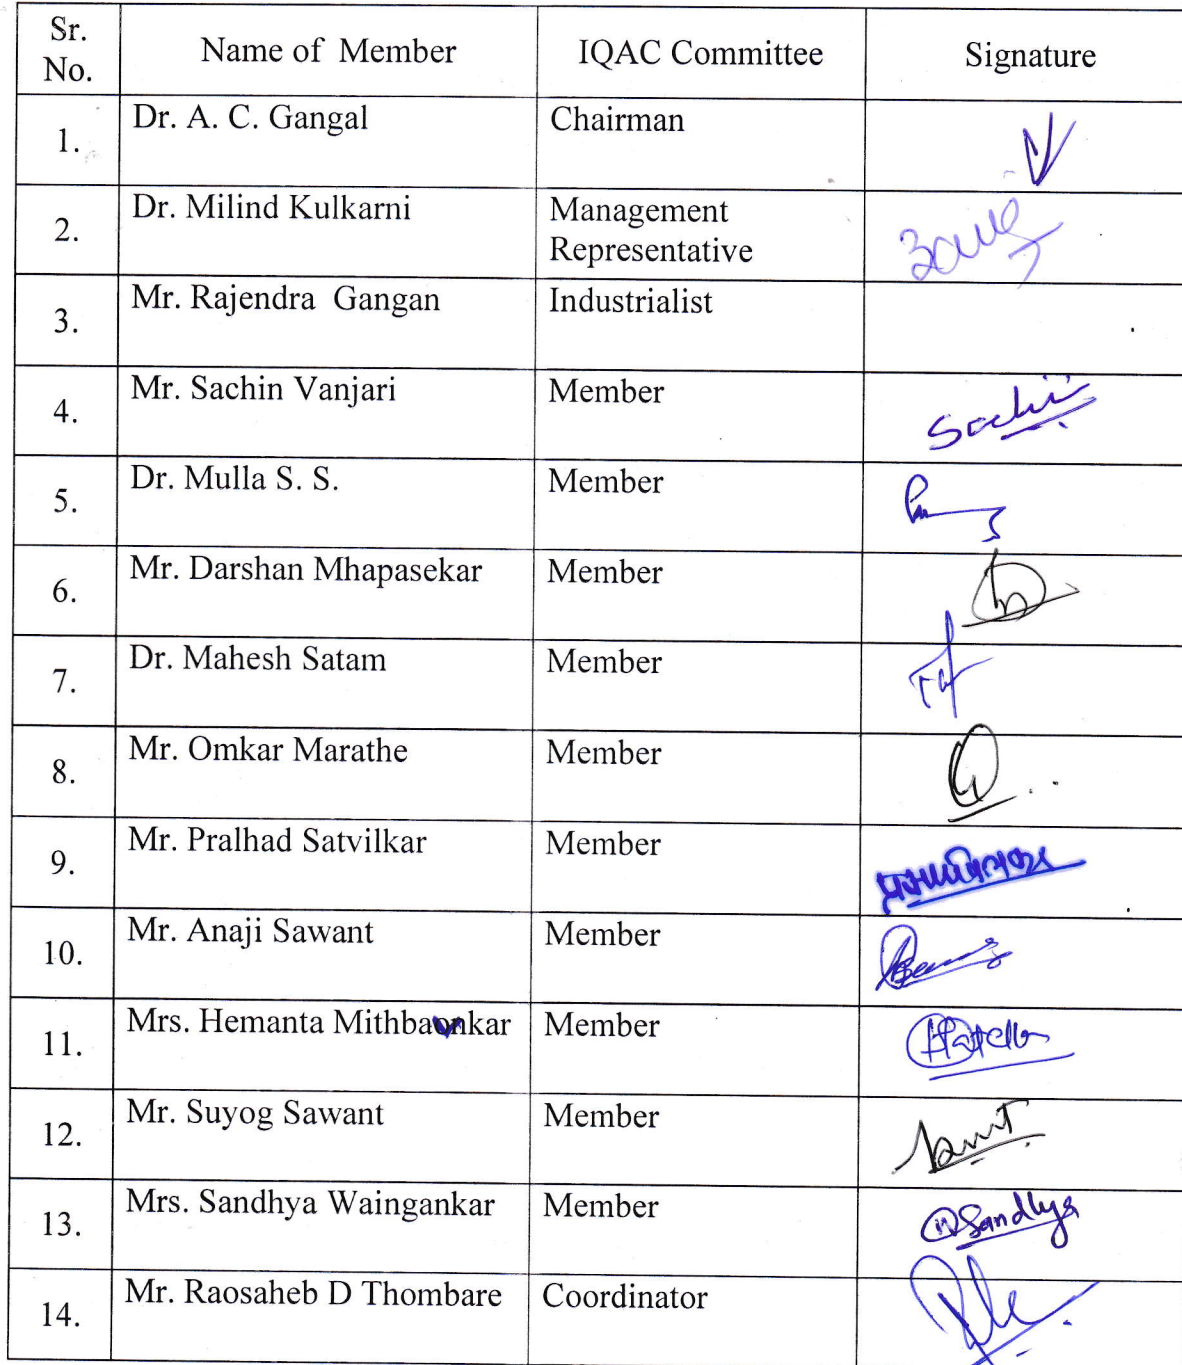 Sr. No. Name of Member IQAC Committee Signature
1. Dr. A. C. Gangal Chairman
2. Dr. Milind Kulkarni Management Representative
3. Mr. Rajendra Gangan Industrialist
4. Mr. Sachin Vanjari Member Sachin
5. Dr. Mulla S. S. Member
6. Mr. Darshan Mhapasekar Member
7. Dr. Mahesh Satam Member
8. Mr. Omkar Marathe Member
9. Mr. Pralhad Satvilkar Member
10. Mr. Anaji Sawant Member
11. Mrs. Hemanta Mithbavkar Member
12. Mr. Suyog Sawant Member
13. Mrs. Sandhya Waingankar Member Sandhya
14. Mr. Raosaheb D Thombare Coordinator